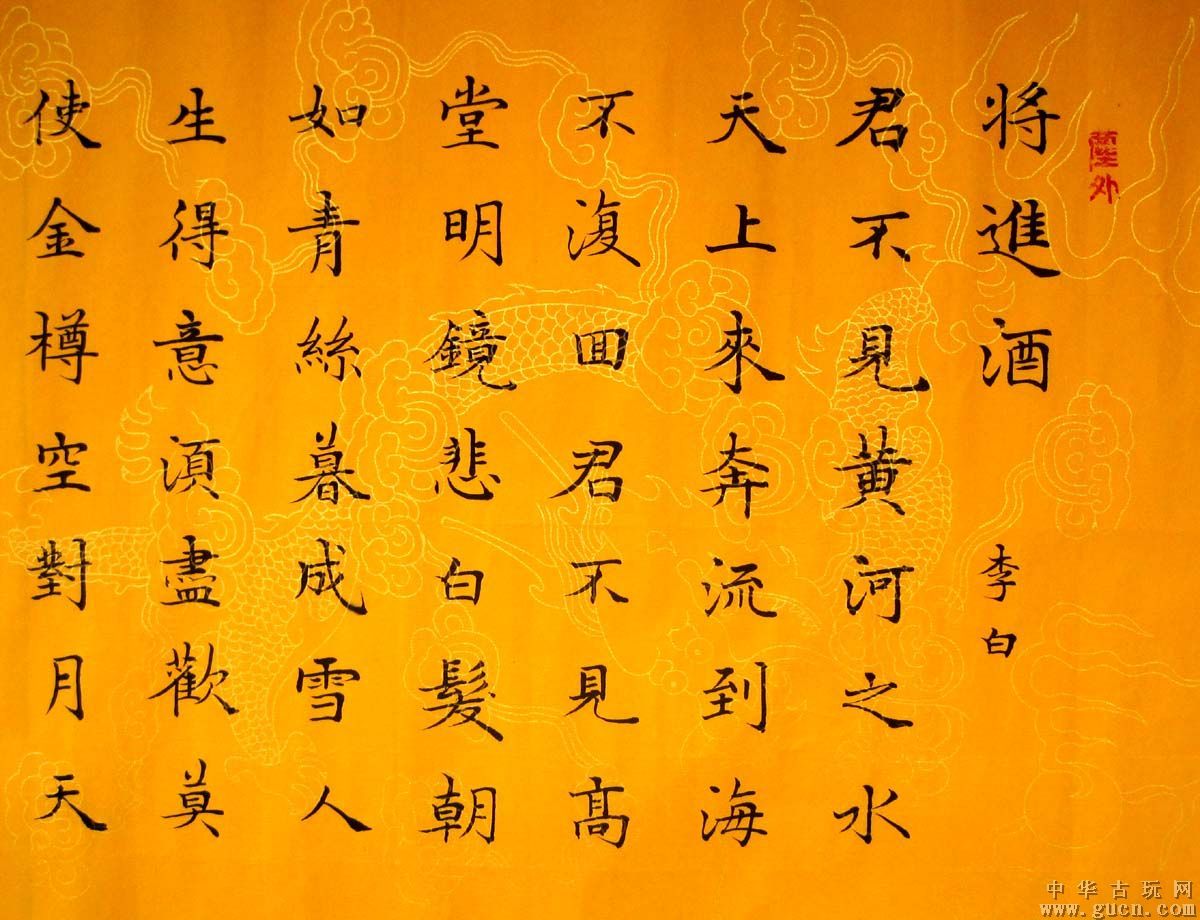 將進酒 李白
君不見黃河之水
天上來奔流到海
不復回君不見高
堂明鏡悲白髮朝
如青絲暮成雪人
生得意須盡歡莫
使金樽空對月天
塵外
中华古玩网
www.gucn.com